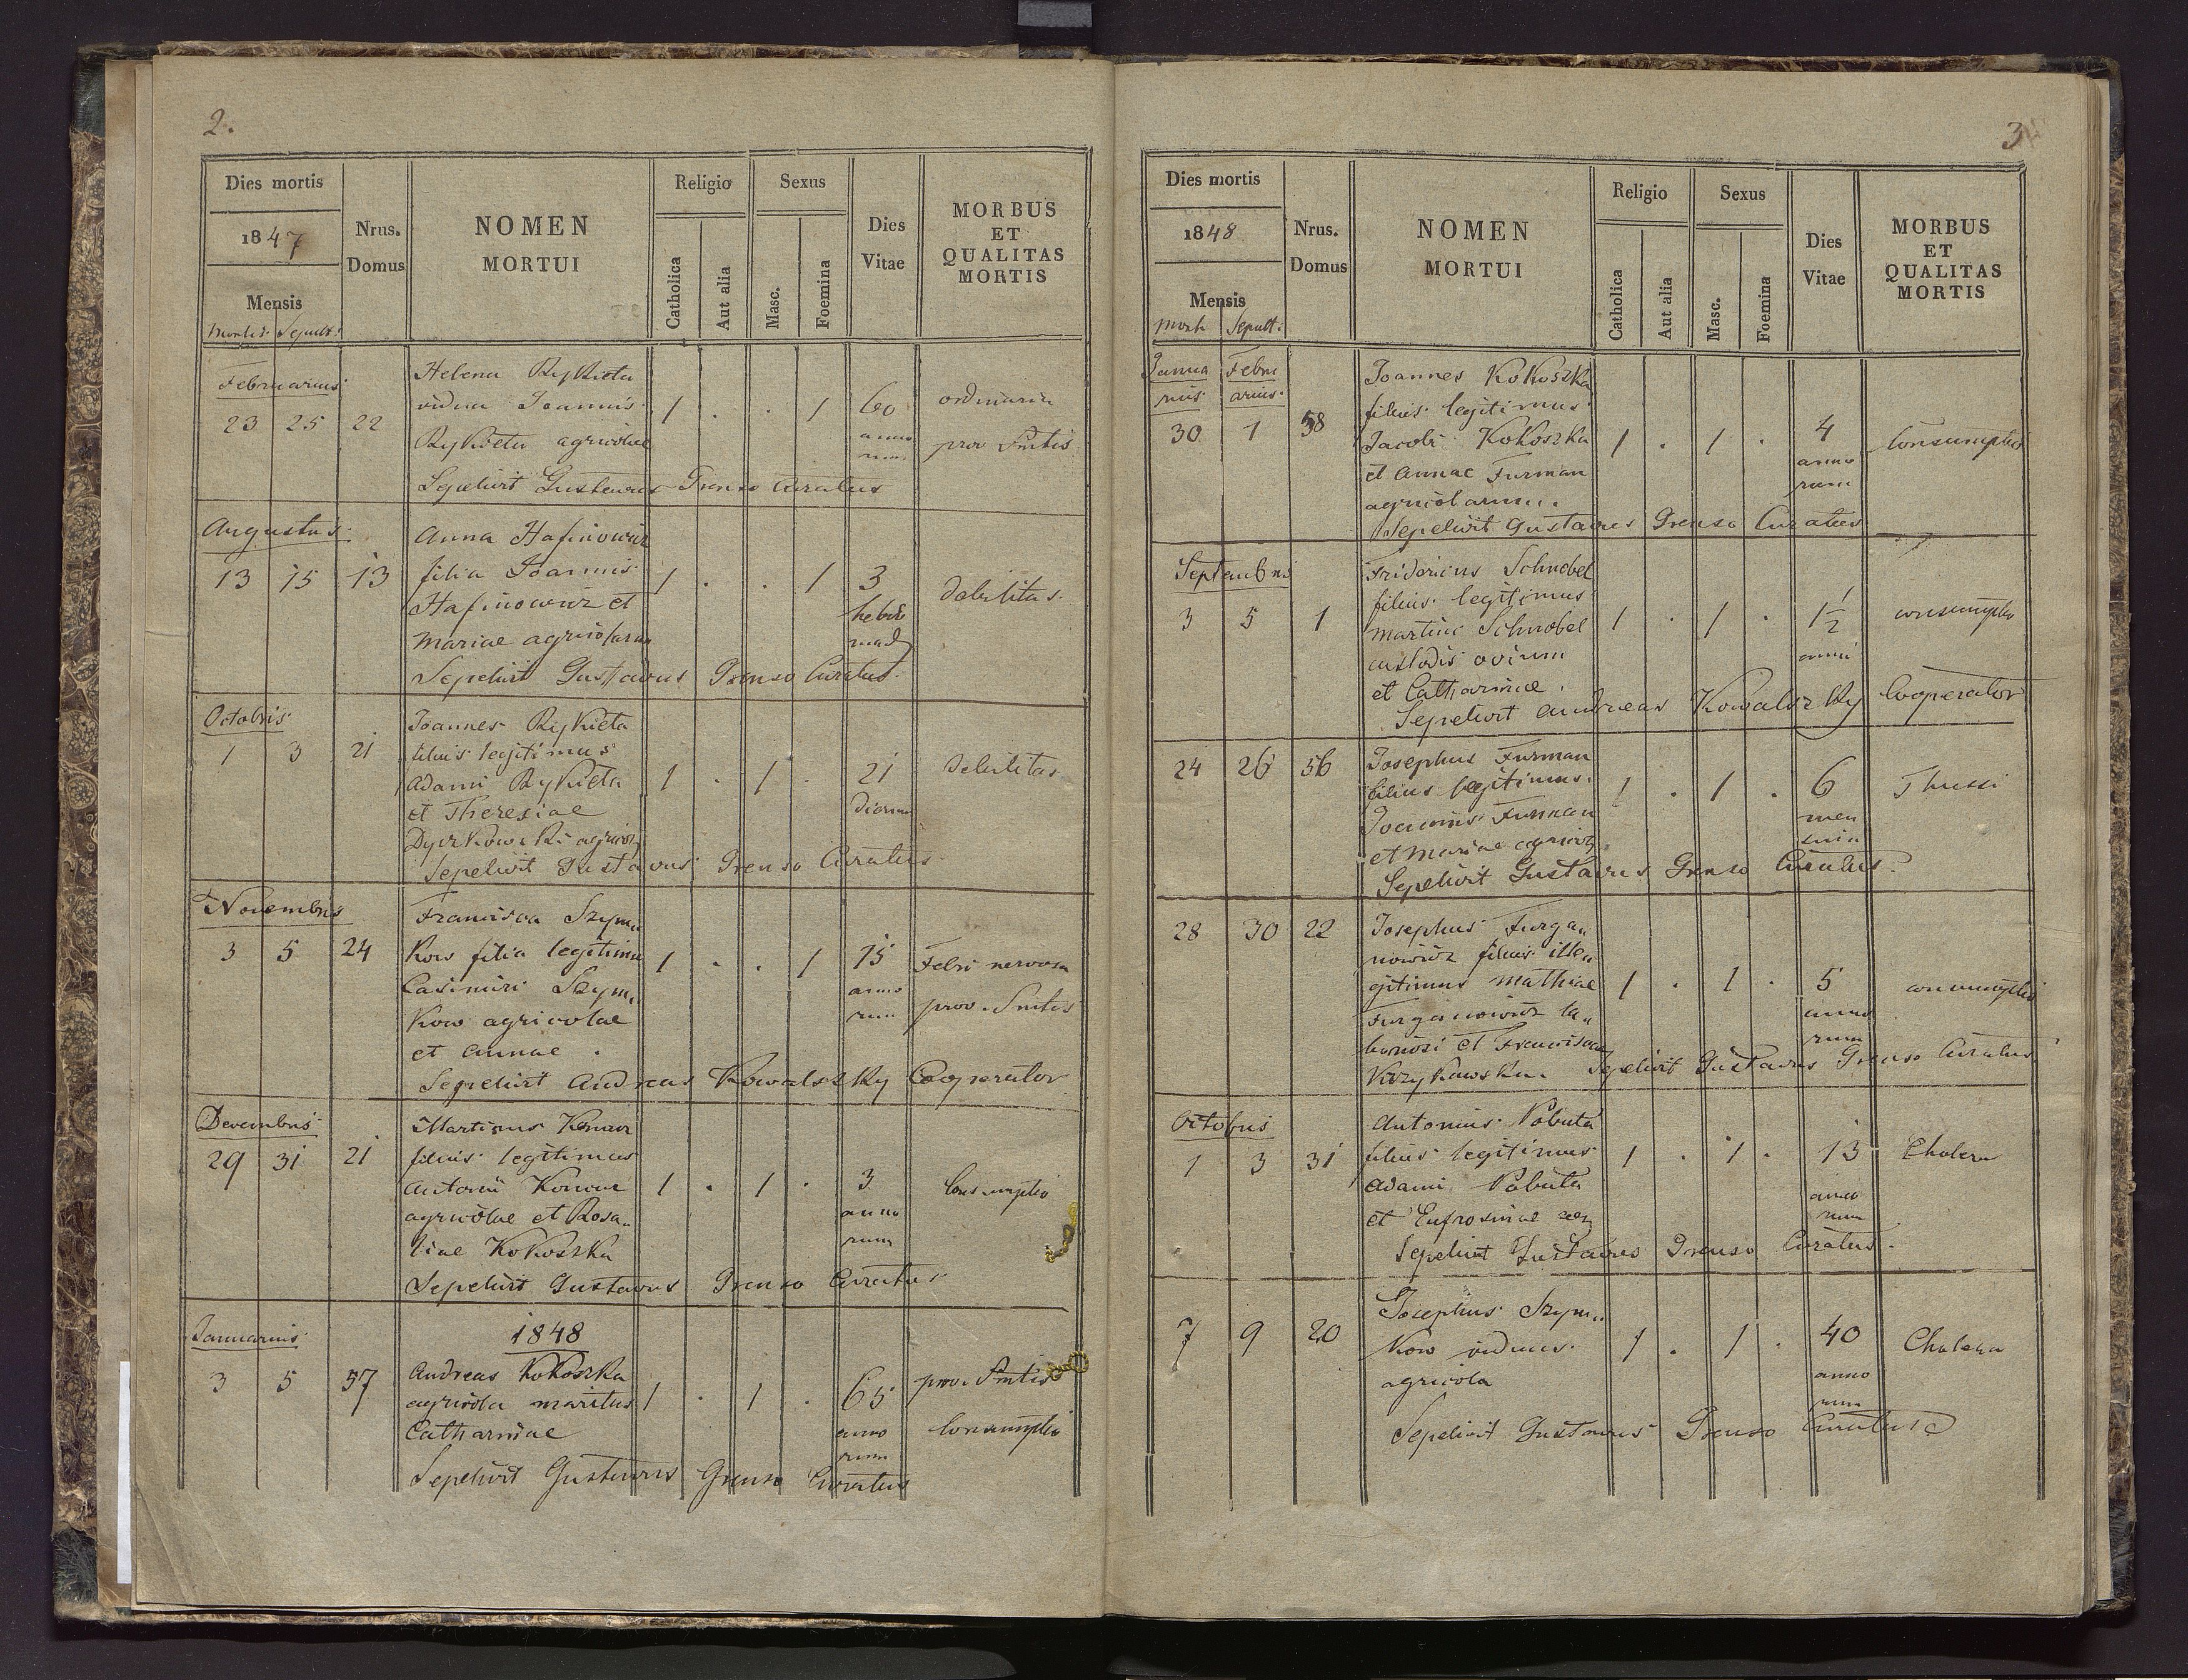 2.
Dies mortis
1847
Mensis
mortis Sepult.
Nrus. Domus
NOMEN
MORTUI
Religio
Catholica
Aut alia
Sexus
Masc.
Foemina
Dies
Vitae
MORBUS
ET
QUALITAS
MORTIS
Februarius
23 25 22
Helena Rykieta
vidua Joannis
Rykieta agricolae
1 . . 1
60
anno
rum
ordinaria
prov. Smtis
Sepelivit Gustavus Prenso Curatus
Augustus
13 15 13
Anna Hafinowicz
filia Joannis
Hafinowicz et
Mariae agricolarum
1 . . 1
3
hebdo
mad
debilitas
Sepelivit Gustavus Prenso Curatus.
Octobris
1 3 21
Joannes Rykieta
filius legitimus
Adami Rykieta
et Theresiae
Dyrkowski agricol
1 . 1 .
21
dierum
debilitas
Sepelivit Gustavus Prenso Curatus
Novembris
3 5 24
Francisca Szym„
kow filia legitima
Casimiri Szym„
kow agricolae
et Annae .
1 . . 1
15
anno
rum
Febri nervosa
prov. Smtis
Sepelivit Andreas Kowalszky Cooperator
Decembris
29 31 21
Martinus Konior
filius legitimus
Antonii Konior
agricolae et Rosa„
liae Kokoszka
1 . 1 .
3
anno
rum
Consumptio
Sepelivit Gustavus Prenso Curatus
1848
Januarius
3 5 57
Andreas Kokoszka
agricola maritus
Catharinae
1 . 1 .
65
anno
rum
prov. Smtis
Consumptio
Sepelivit Gustavus Grenso Curatus
3
Dies mortis
1848
Mensis
mort Sepult.
Nrus.
Domus
NOMEN
MORTUI
Religio
Catholica
Aut alia
Sexus
Masc.
Foemina
Dies
Vitae
MORBUS
ET
QUALITAS
MORTIS
Janua Febru
rius arius
30 1 58
Joannes Kokoszka
filius legitimus
Jacobi Kokoszka
et Annae Furman
agricolarum.
1 . 1 .
4
anno
rum
Consumptio
Sepelivit Gustavus Prenso Curatus
Septembris
3 5 1
Fridericus Schnobel
filius legitimus
Martini Schnobel
custodis ovium
et Catharinae.
1 . 1 .
1½
anni
consumptio
Sepelivit Andreas Kowalszky Cooperator
24 26 56
Josephus Furman
filius legitimus
Joannis Furman
et Mariae agricol
1 . 1 .
6
men
sium
Thussi
Sepelivit Gustavus Grenso Curatus.
28 30 22
Josephus Furga„
nowicz filius ille„
gitimus Mathiae
Furganowicz la„
boriosi et Franciscae
Krzykawska.
1 . 1 .
5
anno
rum
consumptio
Sepelivit Gustavus Grenso Curatus
Octobris
1 3 31
Antonius Pobuta
filius legitimus
Adami Pobuta
et Eufrosinae
1 . 1 .
13
anno
rum
Cholera
Sepelivit Gustavus Prenso Curatus.
7 9 20
Josephus Szym„
kow viduus
agricola
1 . 1 .
40
anno
rum
Cholera
Sepelivit Gustavus Prenso Curatus